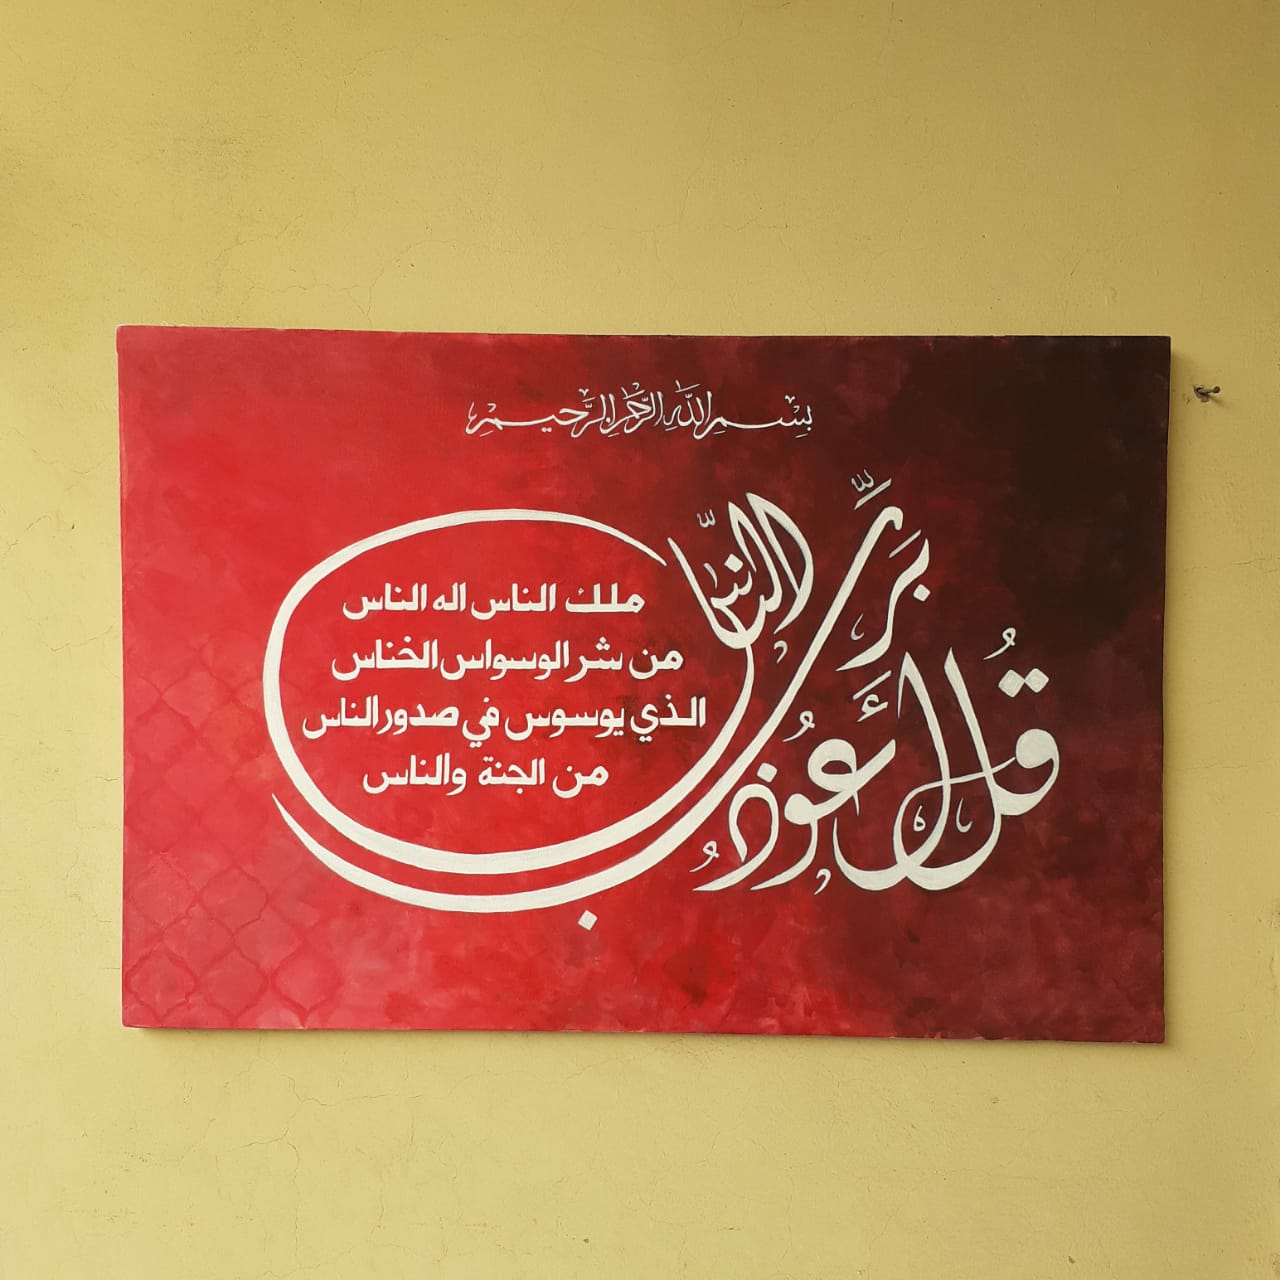 بِسْمِ اللَّهِ الرَّحْمَٰنِ الرَّحِيمِ
قُلْ أَعُوذُ بِرَبِّ النَّاسِ
ملك الناس اله الناس
من شر الوسواس الخناس
الذي يوسوس في صدور الناس
من الجنة والناس